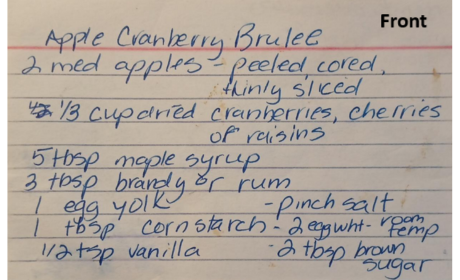 Front
Apple Cranberry Brulee
2 med apples - peeled, cored,
thinly sliced
1/3 cup dried cranberries, cherries
of raisins
5 tbsp maple syrup
3 tbsp brandy or rum
1 egg yolk - pinch salt
1 tbsp cornstarch - 2 egg wht - room temp
1/2 tsp vanilla - 2 tbsp brown
sugar